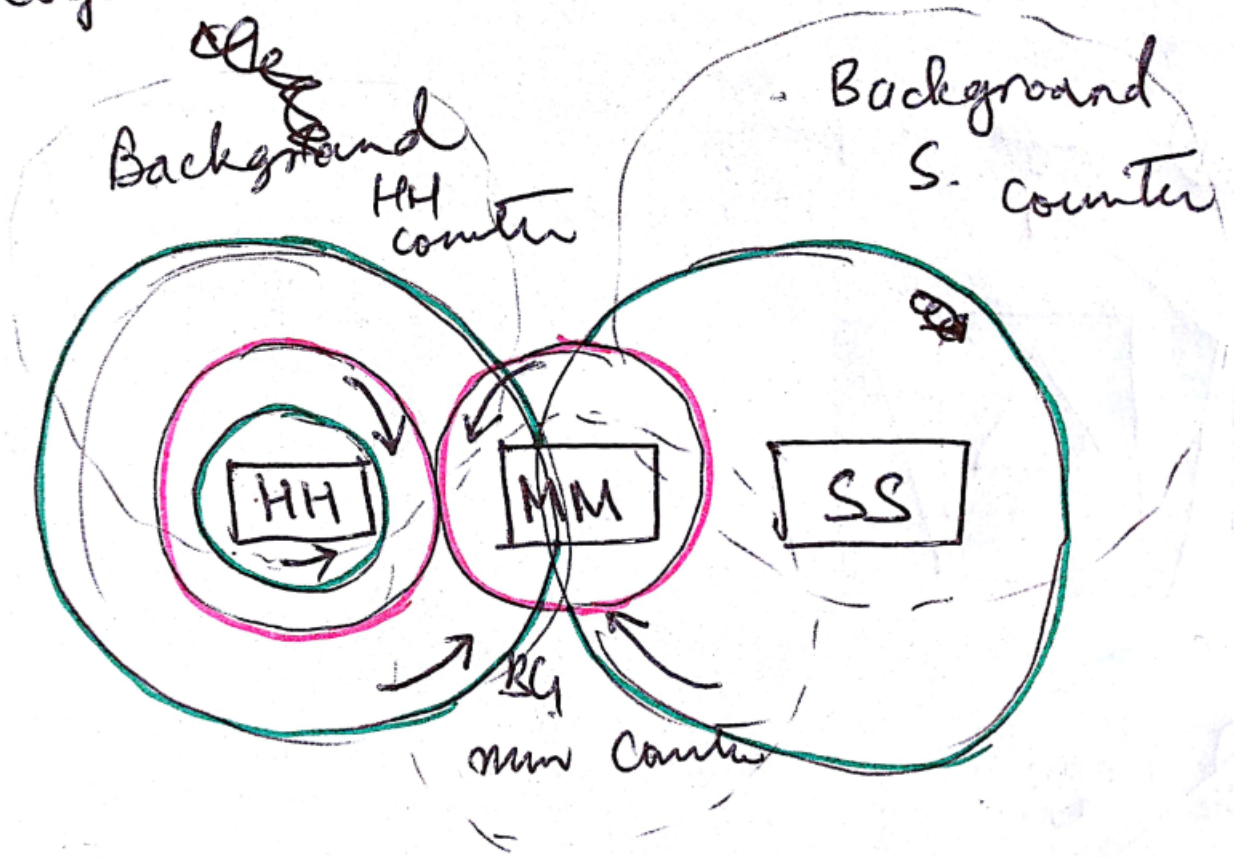 Background
HH
counter
Background
S. counter
HH
MM
SS
BG
min Counter